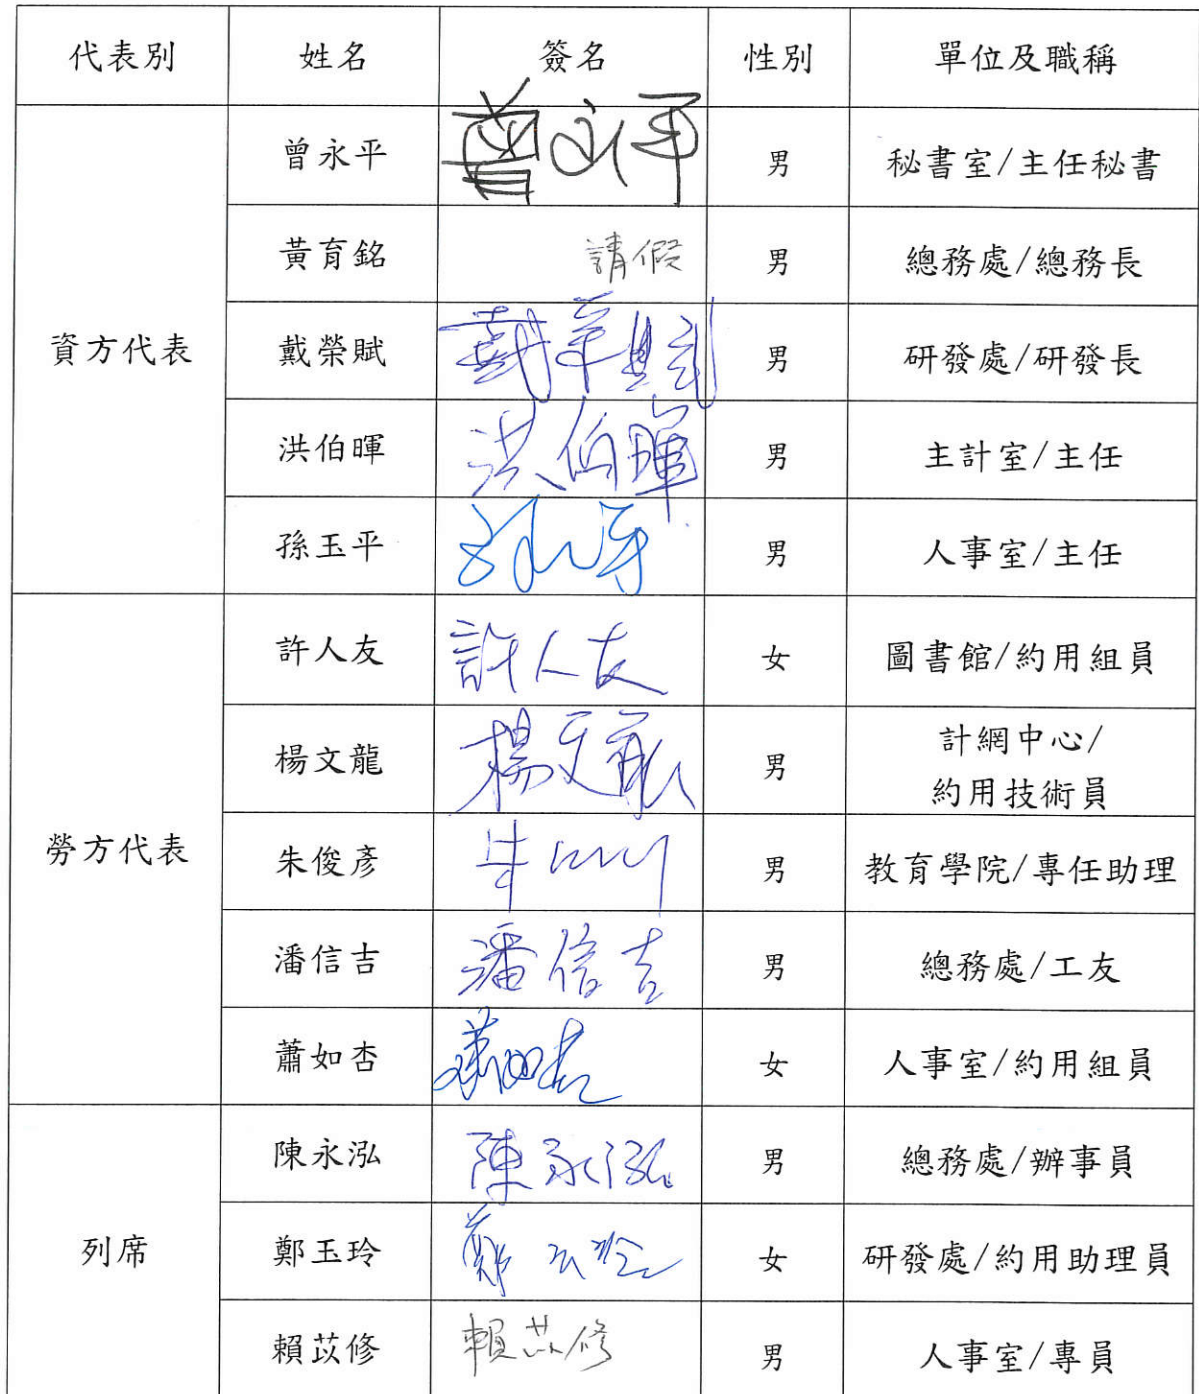 代表別 姓名 簽名 性別 單位及職稱
資方代表
曾永平 曾永平 男 秘書室/主任秘書
黃育銘 請假 男 總務處/總務長
戴榮賦 戴榮賦 男 研發處/研發長
洪伯暉 洪伯暉 男 主計室/主任
孫玉平 孫玉平 男 人事室/主任
勞方代表
許人友 許人友 女 圖書館/約用組員
楊文龍 楊文龍 男 計網中心/
約用技術員
朱俊彥 朱 男 教育學院/專任助理
潘信吉 潘信吉 男 總務處/工友
蕭如杏 蕭如杏 女 人事室/約用組員
列席
陳永泓 陳永泓 男 總務處/辦事員
鄭玉玲 鄭玉玲 女 研發處/約用助理員
賴苡修 賴苡修 男 人事室/專員